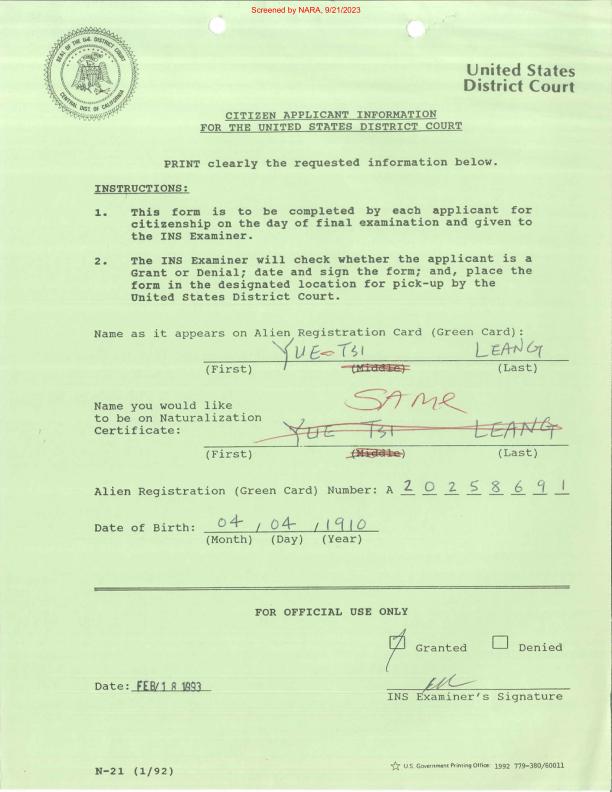 Screened by NARA, 9/21/2023
SEAL OF THE U.S. DISTRICT COURT
CENTRAL DIST. OF CALIFORNIA
United States
District Court
CITIZEN APPLICANT INFORMATION
FOR THE UNITED STATES DISTRICT COURT
PRINT clearly the requested information below.
INSTRUCTIONS:
1. This form is to be completed by each applicant for
citizenship on the day of final examination and given to
the INS Examiner.
2. The INS Examiner will check whether the applicant is a
Grant or Denial; date and sign the form; and, place the
form in the designated location for pick-up by the
United States District Court.
Name as it appears on Alien Registration Card (Green Card):
YUE-TSI LEANG
(First) (Middle) (Last)
Name you would like
to be on Naturalization
Certificate:
SAME
YUE TSI LEANG
(First) (Middle) (Last)
Alien Registration (Green Card) Number: A 2 0 2 5 8 6 9 1
Date of Birth: 04 / 04 / 1910
(Month) (Day) (Year)
FOR OFFICIAL USE ONLY
Granted Denied
Date: FEB 18 1993
INS Examiner's Signature
N-21 (1/92)
U.S. Government Printing Office: 1992 779-380/60011